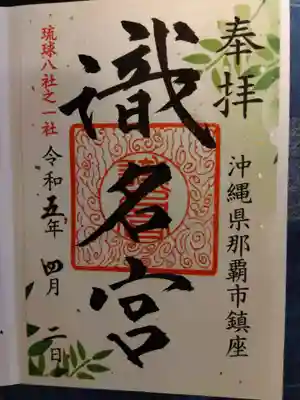 奉拝
沖縄県那覇市鎮座
識名宮
琉球八社之一社
令和五年四月二日